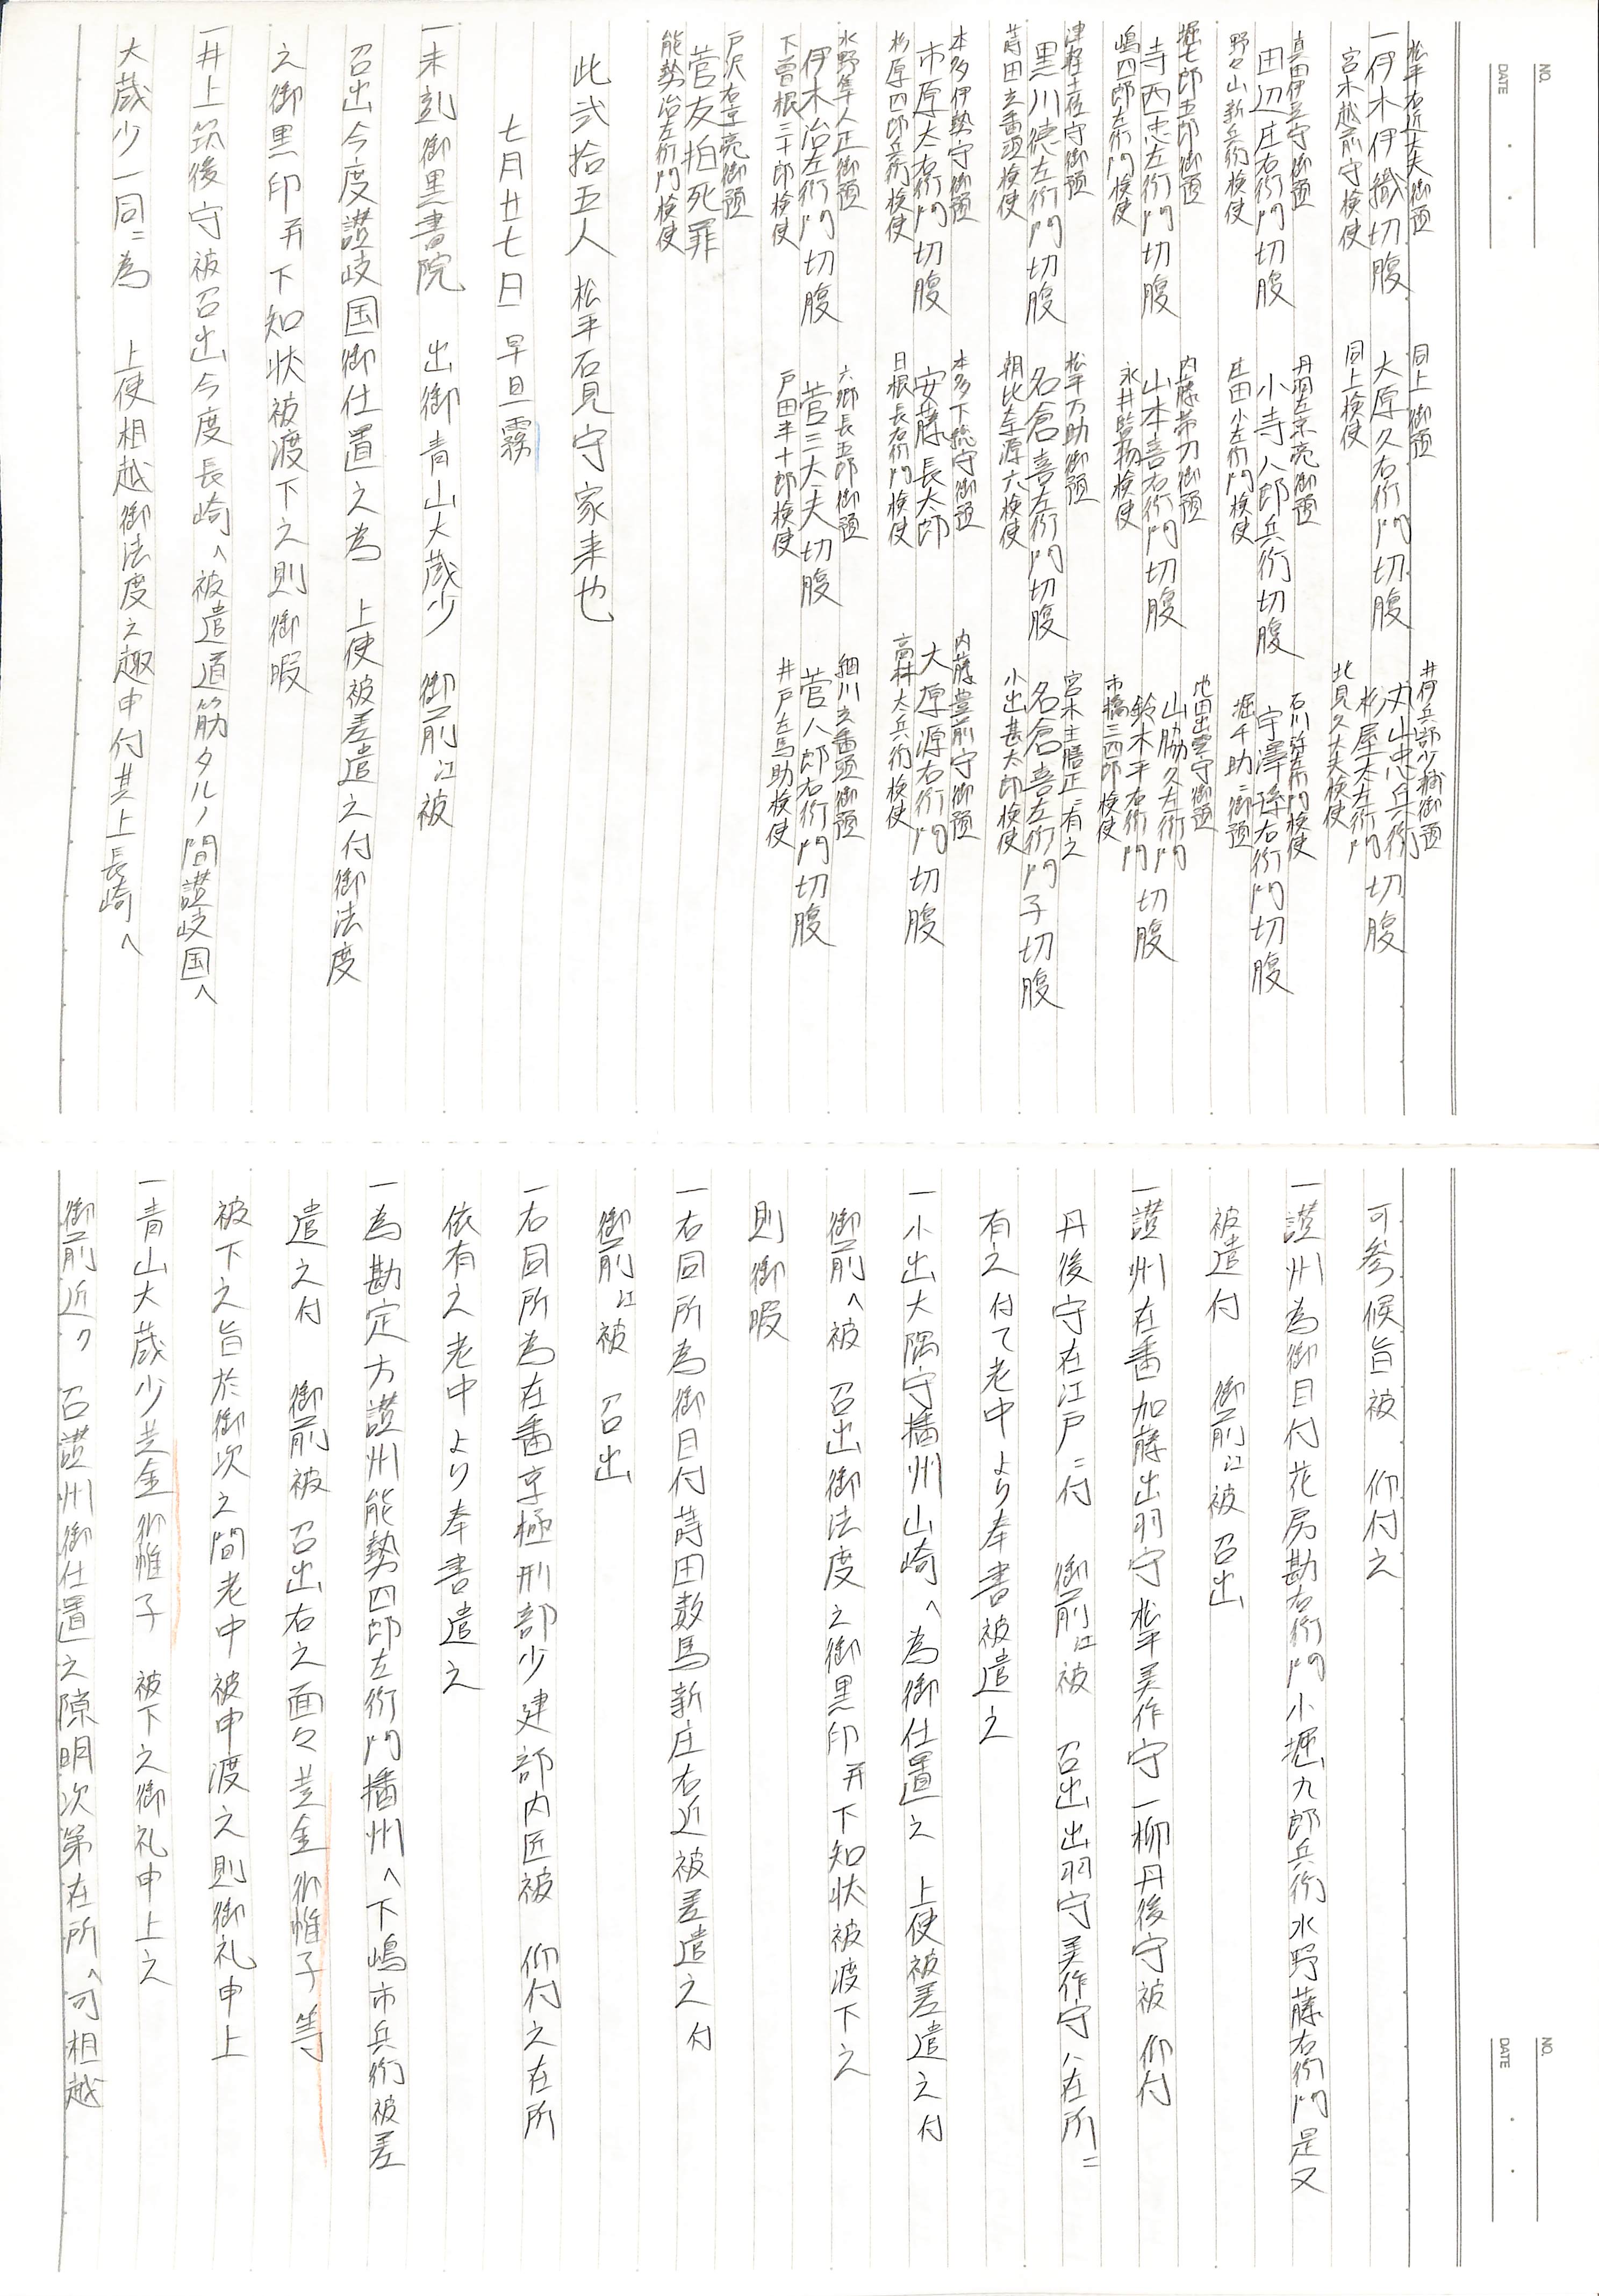 NO.
DATE
松平右近大夫御預
一伊木伊織切腹
宮木越前守検使
同上御預
大原久右衛門切腹
同上検使
井伊兵部少輔御預
丈山忠兵衛
杉屋太左衛門切腹
北見久大夫検使
真田伊豆守御預
田辺庄右衛門切腹
野々山新兵衛検使
丹羽左京亮御預
小寺八郎兵衛切腹
庄田小左衛門検使
石川弥左衛門検使
宇澤孫右衛門切腹
堀千助ニ御預
堀七郎五郎御預
寺西忠左衛門切腹
嶋四郎左衛門検使
内藤帯刀御預
山本喜右衛門切腹
永井監物検使
池田出雲守御預
山脇久左衛門
鈴木平右衛門切腹
市橋三四郎検使
津軽土佐守御預
黒川徳左衛門切腹
蒔田玄蕃頭検使
松平万助御預
名倉喜左衛門切腹
朝比奈源六検使
宮木主膳正ニ有之
名倉喜左衛門子切腹
小出甚太郎検使
本多伊勢守御預
市原太右衛門切腹
杉原四郎兵衛検使
本多下総守御預
安藤長太郎
日根長右衛門検使
内藤豊前守御預
大原源右衛門切腹
高林太兵衛検使
水野隼人正御預
伊木治左衛門切腹
下曽根三十郎検使
六郷長五郎御預
菅三大夫切腹
戸田半十郎検使
細川玄蕃頭御預
菅八郎右衛門切腹
井戸左馬助検使
戸沢右京亮御預
菅友拍死罪
能勢治左衛門検使
此弐拾五人 松平石見守家来也
七月廿七日 早旦霧
一未刻御黒書院 出御青山大蔵少 御前江被
召出今度讃岐国御仕置之為 上使被差遣之付御法度
之御黒印并下知状被渡下之則御暇
一井上筑後守被召出今度長崎へ被遣道筋タルノ間讃岐国へ
大蔵少一同ニ為 上使相越御法度之趣申付其上長崎へ
NO.
DATE
可参候旨被 仰付之
一讃州為御目付花房勘右衛門小堀九郎兵衛水野藤右衛門是又
被遣付 御前江被召出
一讃州在番加藤出羽守松平美作守一柳丹後守被 仰付
丹後守在江戸ニ付 御前江被 召出出羽守美作守ハ在所ニ
有之付て老中より奉書被遣之
一小出大隅守播州山崎へ為御仕置之 上使被差遣之付
御前へ被 召出御法度之御黒印并下知状被渡下之
則御暇
一右同所為御目付蒔田数馬新庄右近被差遣之付
御前江被 召出
一右同所為在番京極刑部少建部内匠被 仰付之在所
依有之老中より奉書遣之
一為勘定方讃州能勢四郎左衛門播州へ下嶋市兵衛被差
遣之付 御前被 召出右之面々黄金御帷子等
被下之旨於御次之間老中被申渡之則御礼申上
一青山大蔵少黄金御帷子 被下之御礼申上之
御前近ク 召讃州御仕置之隙明次第在所へ可相越